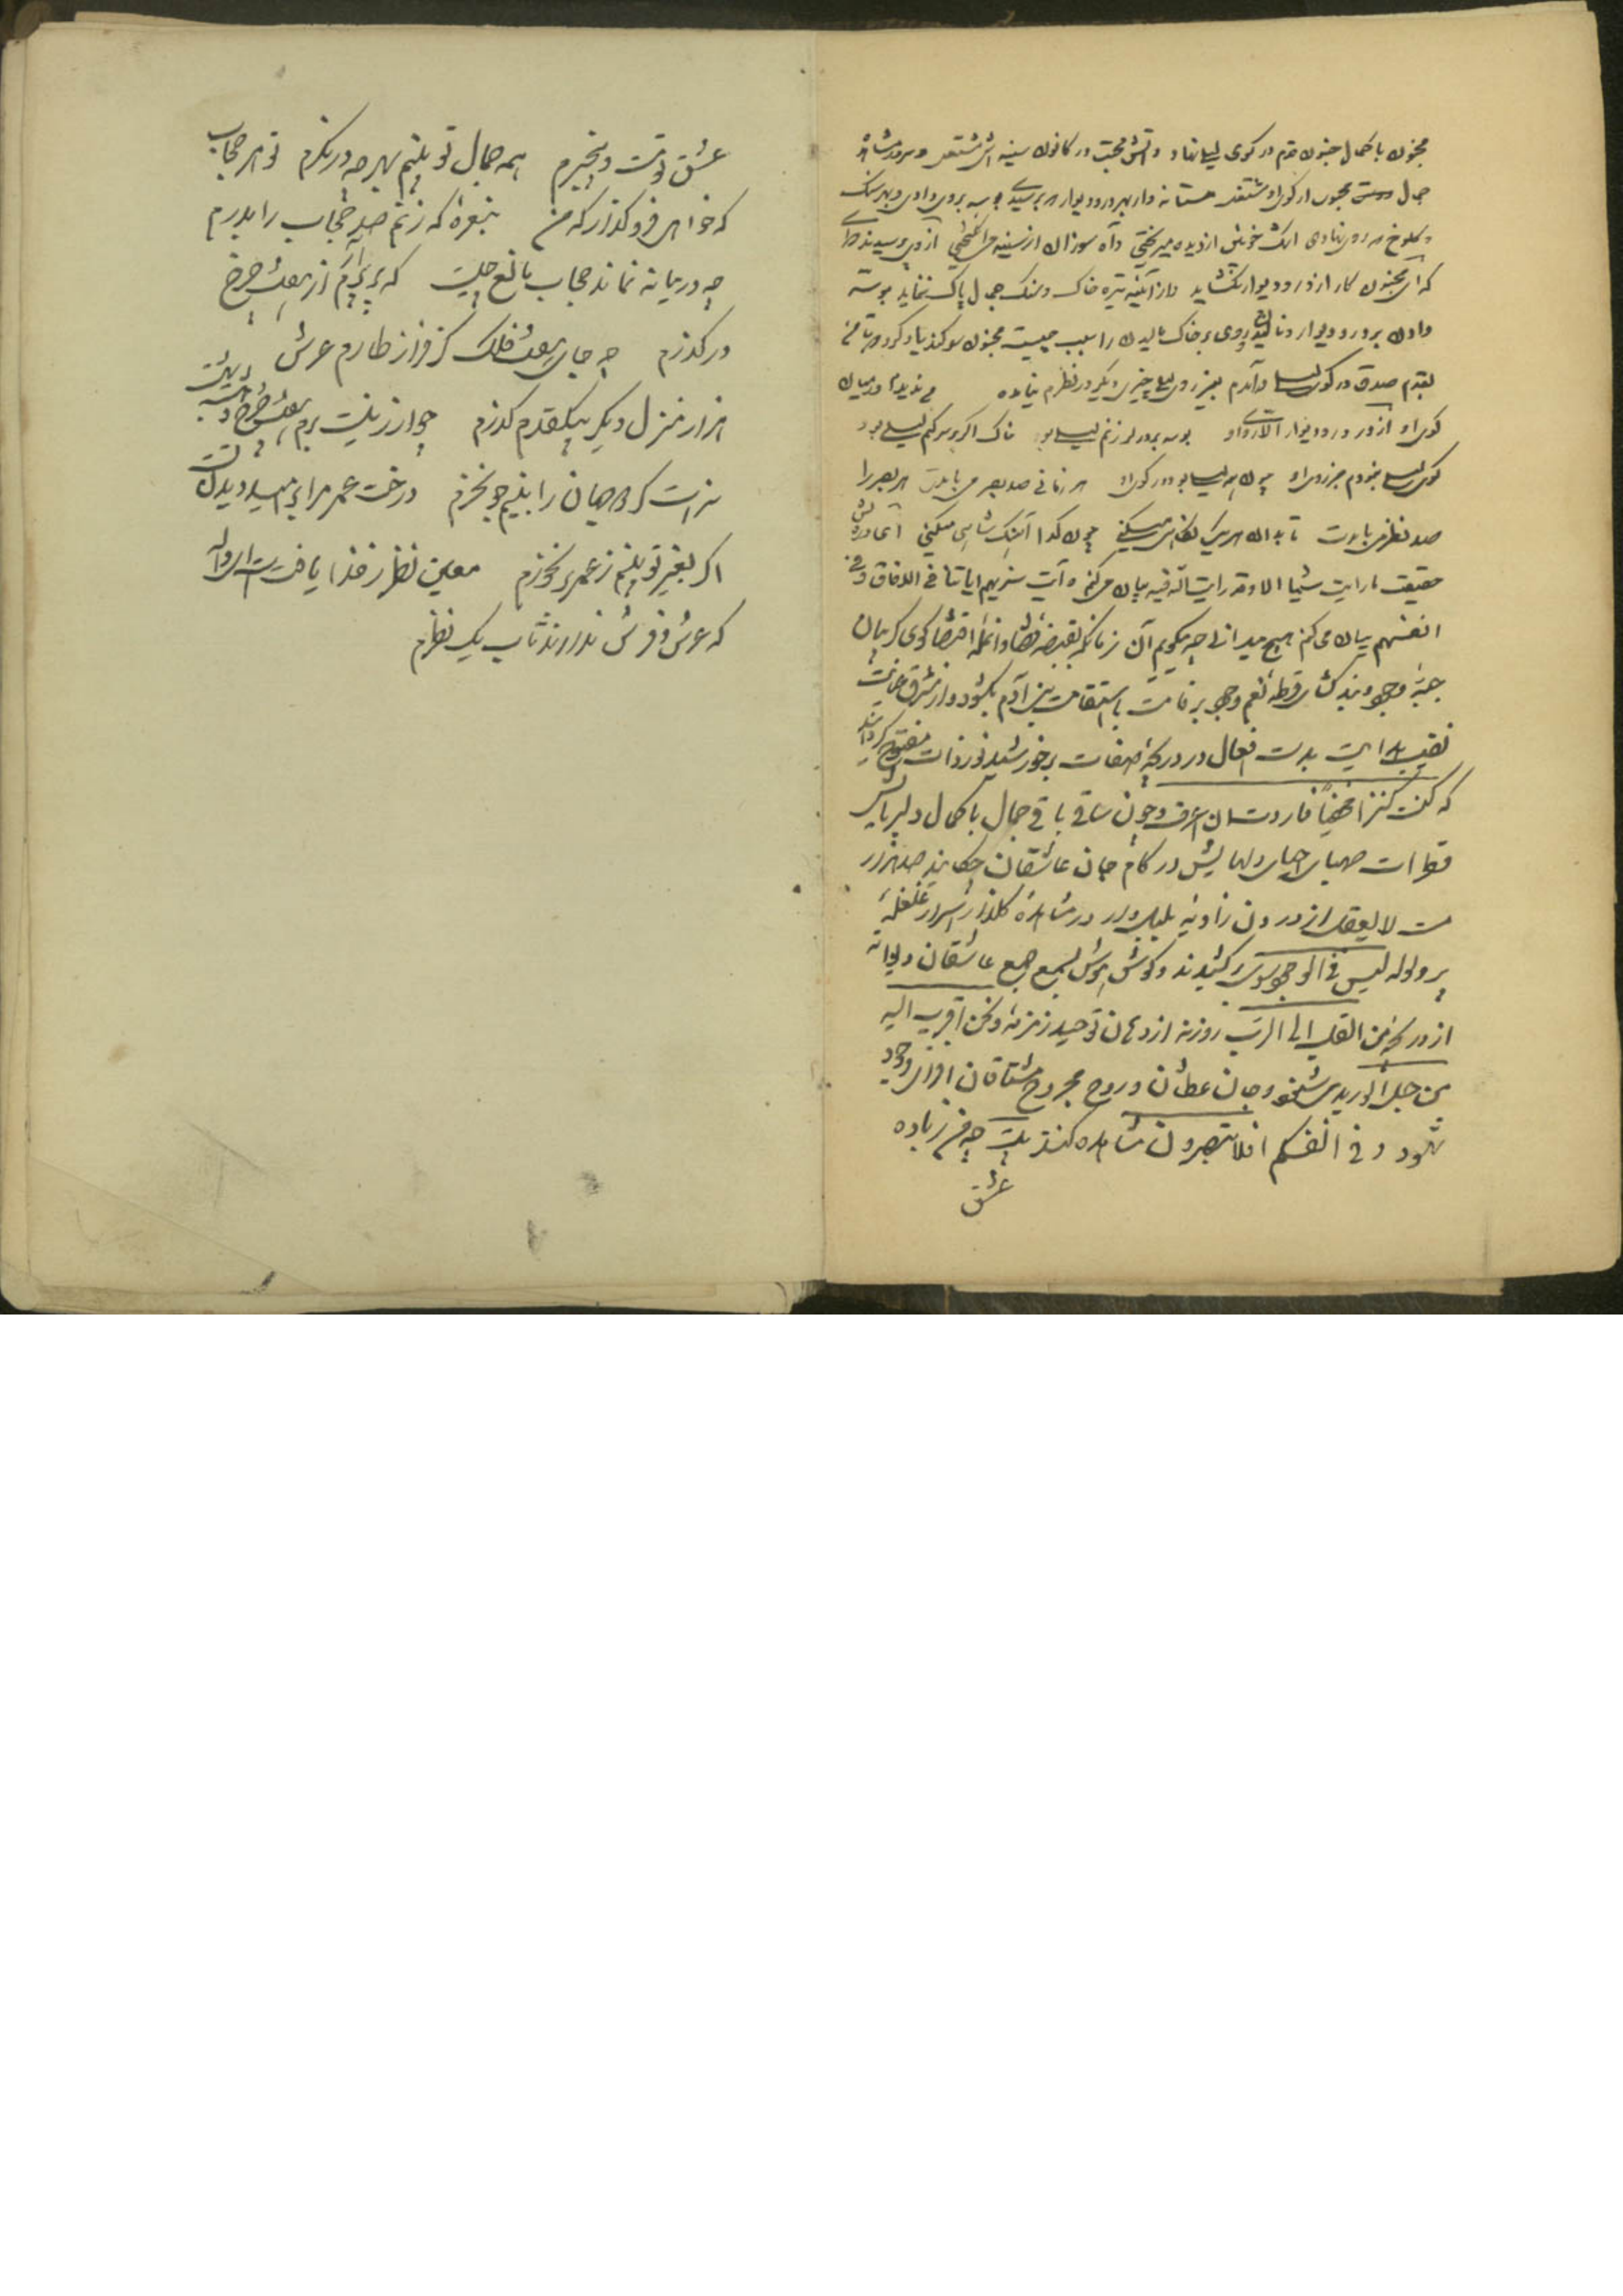 مجنون با کمال جنون قدم در کوی لیلی نهاد و آتش محبت در کانون سینه اش مشتعل و سرور مشاهده
جمال دوست مجنون از کوی او مشتعل مستانه وار بهر در و دیوار می رسیدی بوسه بر وی دادی و بهر سنگ
و کلوخ که روی نهادی اشک خونین از دیده میریختی و آه سوزان از سینه می انگیختی از وی پرسیدند
که ای مجنون کار از در و دیوار نگشاید و از آئینه تیره خاک و سنگ جمال پاک ننماید بوسه
دادن بر در و دیوار و روی بر خاک مالیدن را سبب چیست مجنون سوگند یاد کرد که تا من
بقدم صدق در کوی لیلی درآمدم بغیر روی لیلی چیزی دیگر در نظرم نیامده من ندیدم در میان
کوی او از در و دیوار الا روی او بوسه بر در گر زنم لیلی بود خاک اگر بر سر کنم لیلی بود
کوی لیلی نبودم جز روی او چون همه لیلی بود در کوی او هر زمانی صد بصر می بایدت هر بصر را
صد نظر می بایدت تا بدان هر یک نگاهی میکنی چون گدا آهنگ شاهی میکنی
حقیقت ما رایت شیئا الا و قد رایت الله فیه بیان می کنم و آیت سنریهم ایاتنا فی الافاق و فی
انفسهم بیان می کنم هیچ میدانی چه میگویم آن زمان که بقبضه قضا و انمله اقتضا کوی گریبان
جبه وجود بند گشای قرطه نعم وجود بر قامت با استقامت بنی آدم بگشود و از مشرق عنایت
نقیب هدایت بدست افعال در دریچه صفات بر خورشید نور ذات مفتوح گردانید
که کنت کنزا مخفیا فاردت ان اعرف و چون ساقی باقی جمال با کمال دلربایش
قطرات صهبای احیای دلهایش در کام جان عاشقان چکانید صد هزار
مست لا یعقل از درون زاویه بلبل وار در مشاهده گلزار اسرار غلغله
پر ولوله لیس فی الوجود سوی برکشیدند و گوش هوش بسمع جمع عاشقان دیوانه
از دریچه من القلب الی الرب روزنه از دهان توحید زمزمه و نحن اقرب الیه
من حبل الورید می شنود و جان عطشان و روح مجروح مشتاقان انوار وجود
شهود و فی انفسکم افلا تبصرون مشاهده کنند بیت چه می زیاده
عشق
عشق تو مست و بیخبرم همه جمال تو بینم بهر چه در نگرم تو هر حجاب
که خواهی فرو گذار که من بنعره که زنم صد حجاب را بدرم
چه در میانه نماند حجاب مانع چیست که بر پریم از هفت چرخ
در گذرم چه جای هفت فلک کز فراز طارم عرش
هزار منزل دیگر بیک قدم گذرم جواز نیست برم هفت چرخ و هشت بهشت
سزاست گر دو جهان را به نیم جو نخرم درخت عمر مرا بر امید دیدن تست
اگر بغیر تو بینم ز عمر بر نخورم معین نظر ز خدا یافت است ای والله
که عرش و فرش ندارند تاب یک نظرم